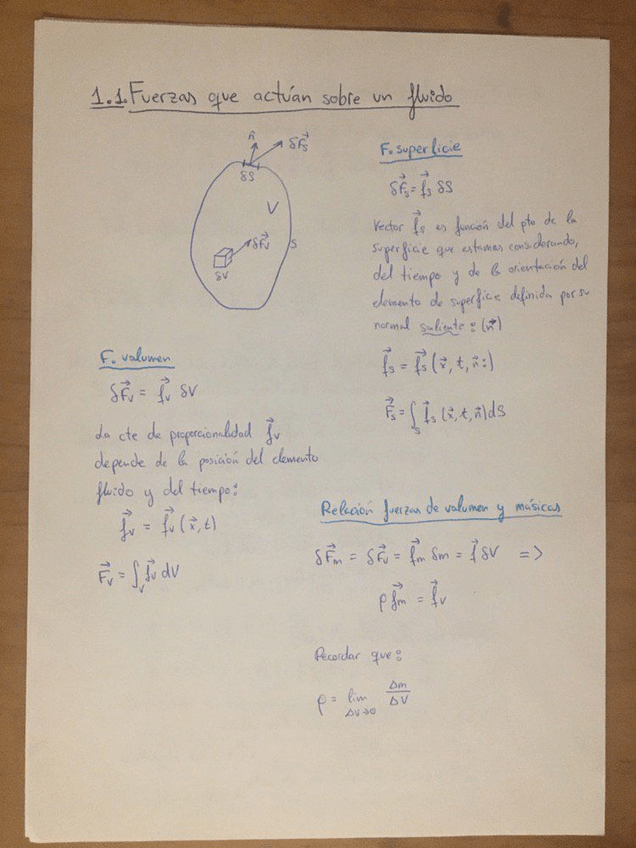 1.1. Fuerzas que actúan sobre un fluido
n⃗ δF⃗s
δS
V
δF⃗v S
δV
F. superficie
δF⃗s = f⃗s δS
Vector f⃗s es función del pto de la
superficie que estamos considerando,
del tiempo y de la orientación del
elemento de superficie definida por su
normal saliente: (n⃗)
f⃗s = f⃗s (x⃗, t, n⃗:)
F⃗s = ∫s f⃗s (x⃗, t, n⃗) dS
F. volumen
δF⃗v = f⃗v δV
La cte de proporcionalidad f⃗v
depende de la posición del elemento
fluido y del tiempo:
f⃗v = f⃗v (x⃗, t)
F⃗v = ∫v f⃗v dV
Relación fuerzas de volumen y másicas
δF⃗m = δF⃗v = f⃗m δm = f⃗ δV =>
ρ f⃗m = f⃗v
Recordar que:
ρ = lim Δm/ΔV
ΔV→0